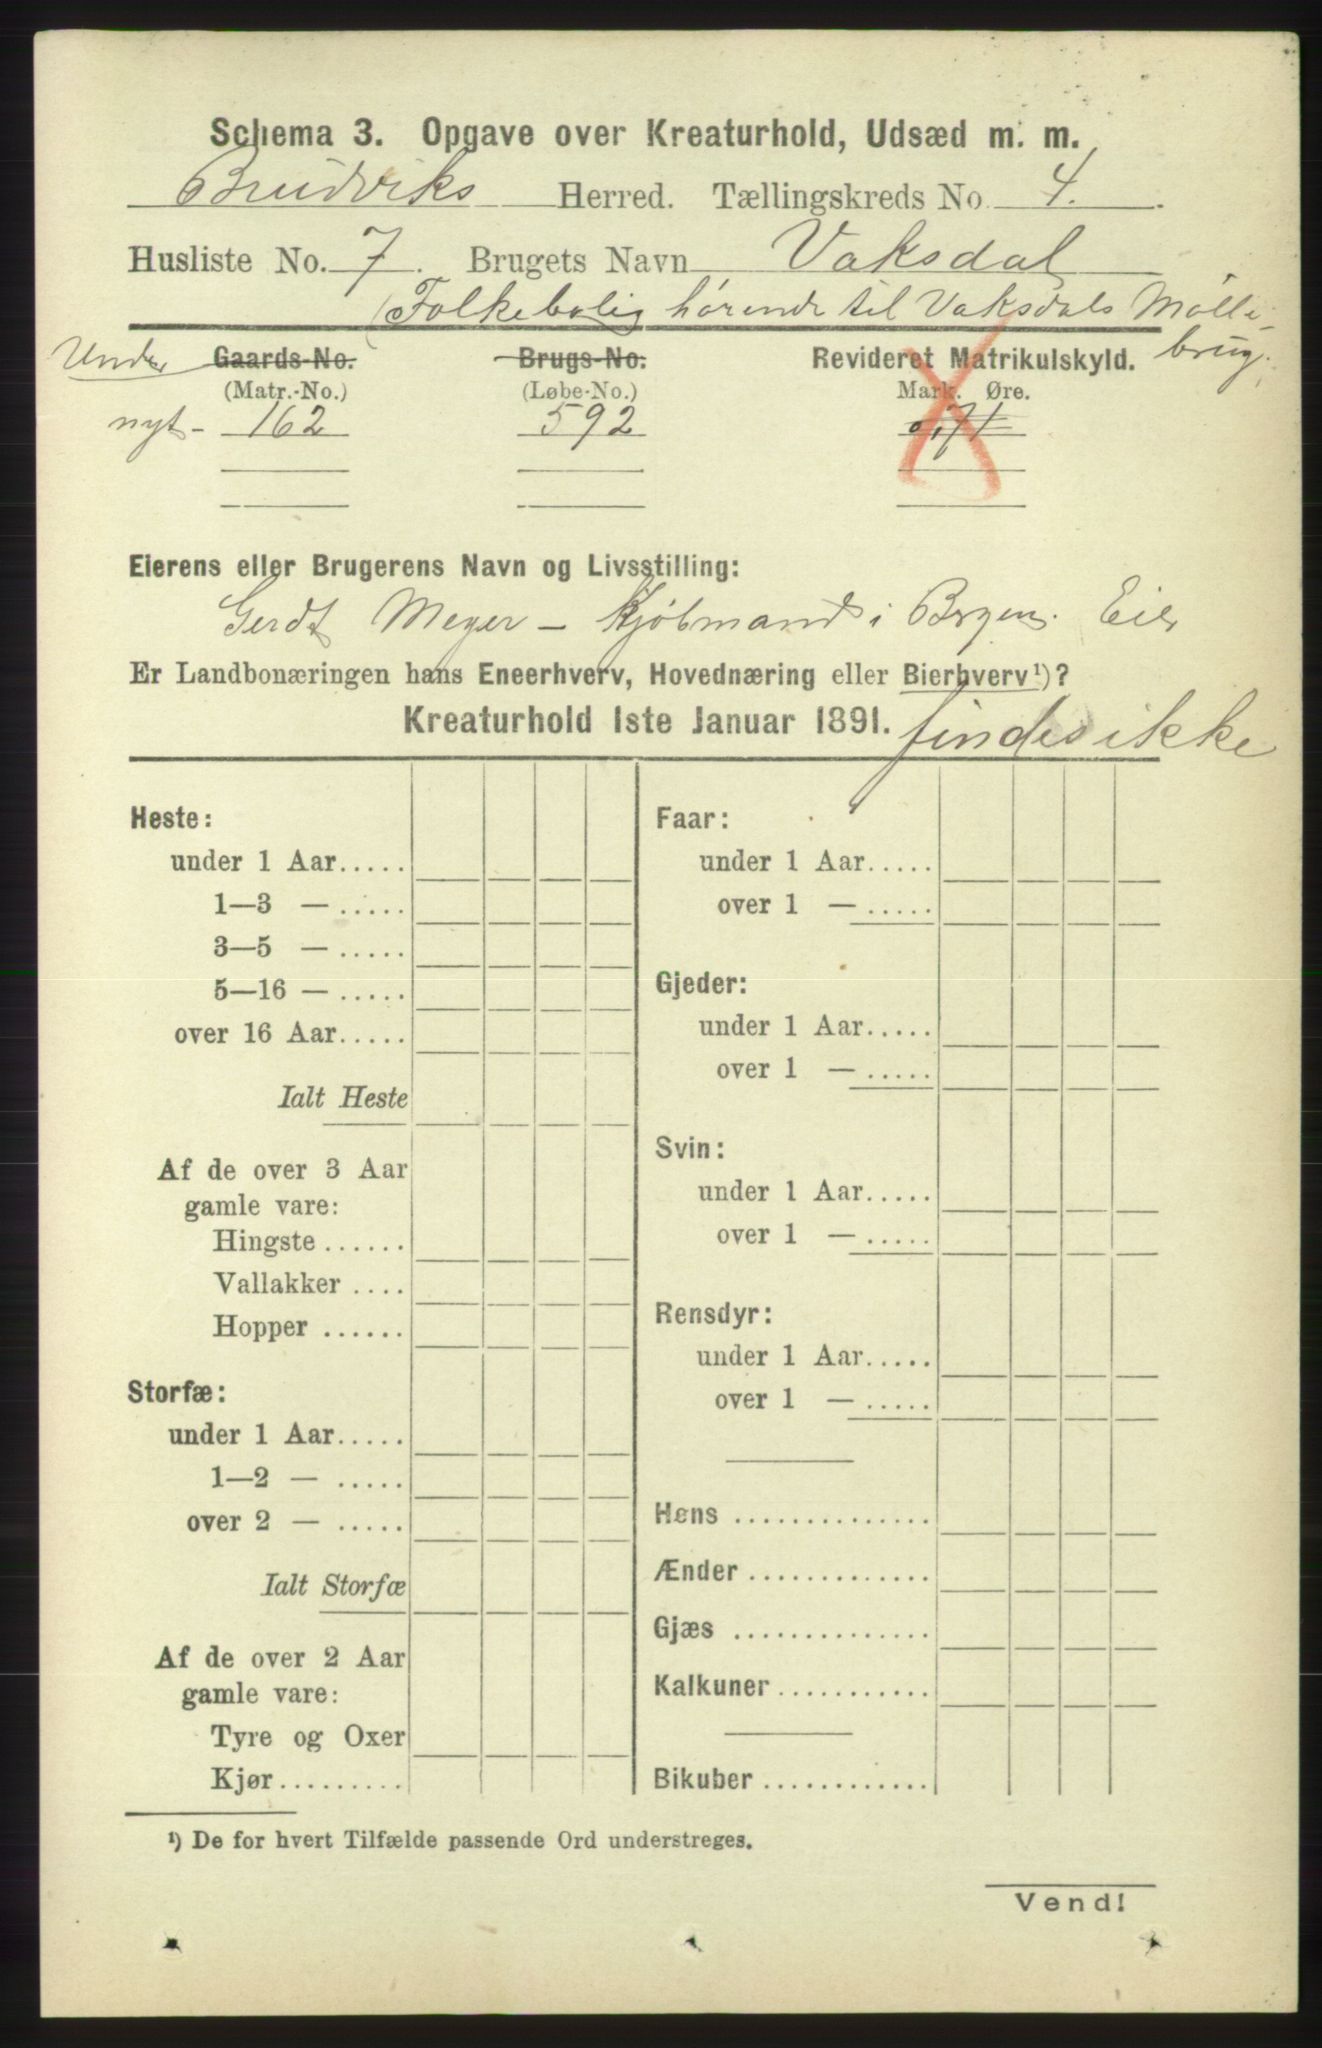 Schema 3. Opgave over Kreaturhold, Udsæd m. m.
Brudviks Herred. Tællingskreds No. 4.
Husliste No. 7. Brugets Navn Vaksdal
(Folkebolig hørende til Vaksdals Mølle-
brug.
Under Gaards-No. Brugs-No. Revideret Matrikulskyld.
(Matr.-No.) (Løbe-No.) Mark. Øre.
nyt - 162 592 0,71
Eierens eller Brugerens Navn og Livsstilling:
Gerdt Meyer - Kjøbmand i Bergen. Eier
Er Landbonæringen hans Eneerhverv, Hovednæring eller Bierhverv¹)?
Kreaturhold 1ste Januar 1891. findes ikke
Heste:
under 1 Aar.....
1—3 — .....
3—5 — .....
5—16 — .....
over 16 Aar.....
Ialt Heste
Af de over 3 Aar
gamle vare:
Hingste ......
Vallakker ....
Hopper ......
Storfæ:
under 1 Aar.....
1—2 — .....
over 2 — .....
Ialt Storfæ
Af de over 2 Aar
gamle vare:
Tyre og Oxer
Kjør.........
Faar:
under 1 Aar.....
over 1 — .....
Gjeder:
under 1 Aar.....
over 1 — .....
Svin:
under 1 Aar.....
over 1 — .....
Rensdyr:
under 1 Aar.....
over 1 — .....
Høns ..............
Ænder .............
Gjæs ..............
Kalkuner ...........
Bikuber ............
¹) De for hvert Tilfælde passende Ord understreges.
Vend!